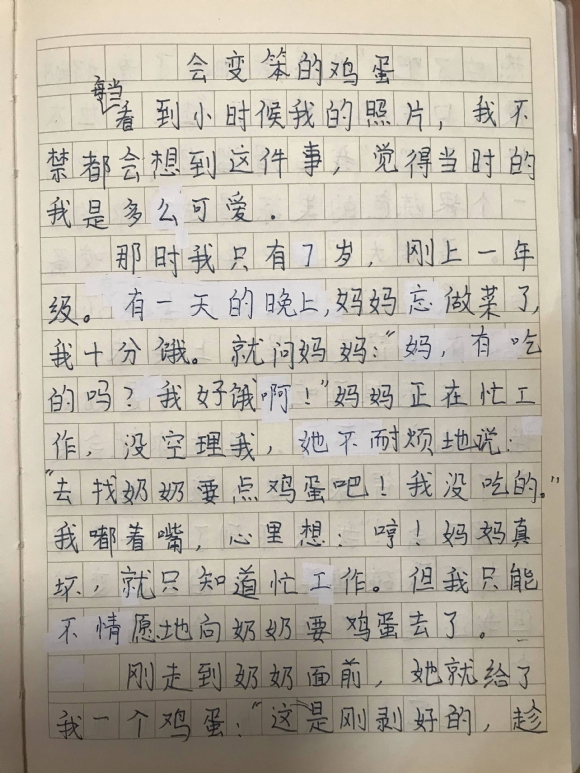 会变笨的鸡蛋
每当看到小时候我的照片，我不
禁都会想到这件事，觉得当时的
我是多么可爱。
那时我只有7岁，刚上一年
级。有一天的晚上，妈妈忘做菜了，
我十分饿。就问妈妈：“妈，有吃
的吗？我好饿啊！”妈妈正在忙工
作，没空理我，她不耐烦地说：
“去找奶奶要点鸡蛋吧！我没吃的。”
我嘟着嘴，心里想：哼！妈妈真
坏，就只知道忙工作。但我只能
不情愿地向奶奶要鸡蛋去了。
刚走到奶奶面前，她就给了
我一个鸡蛋：“这是刚剥好的，趁